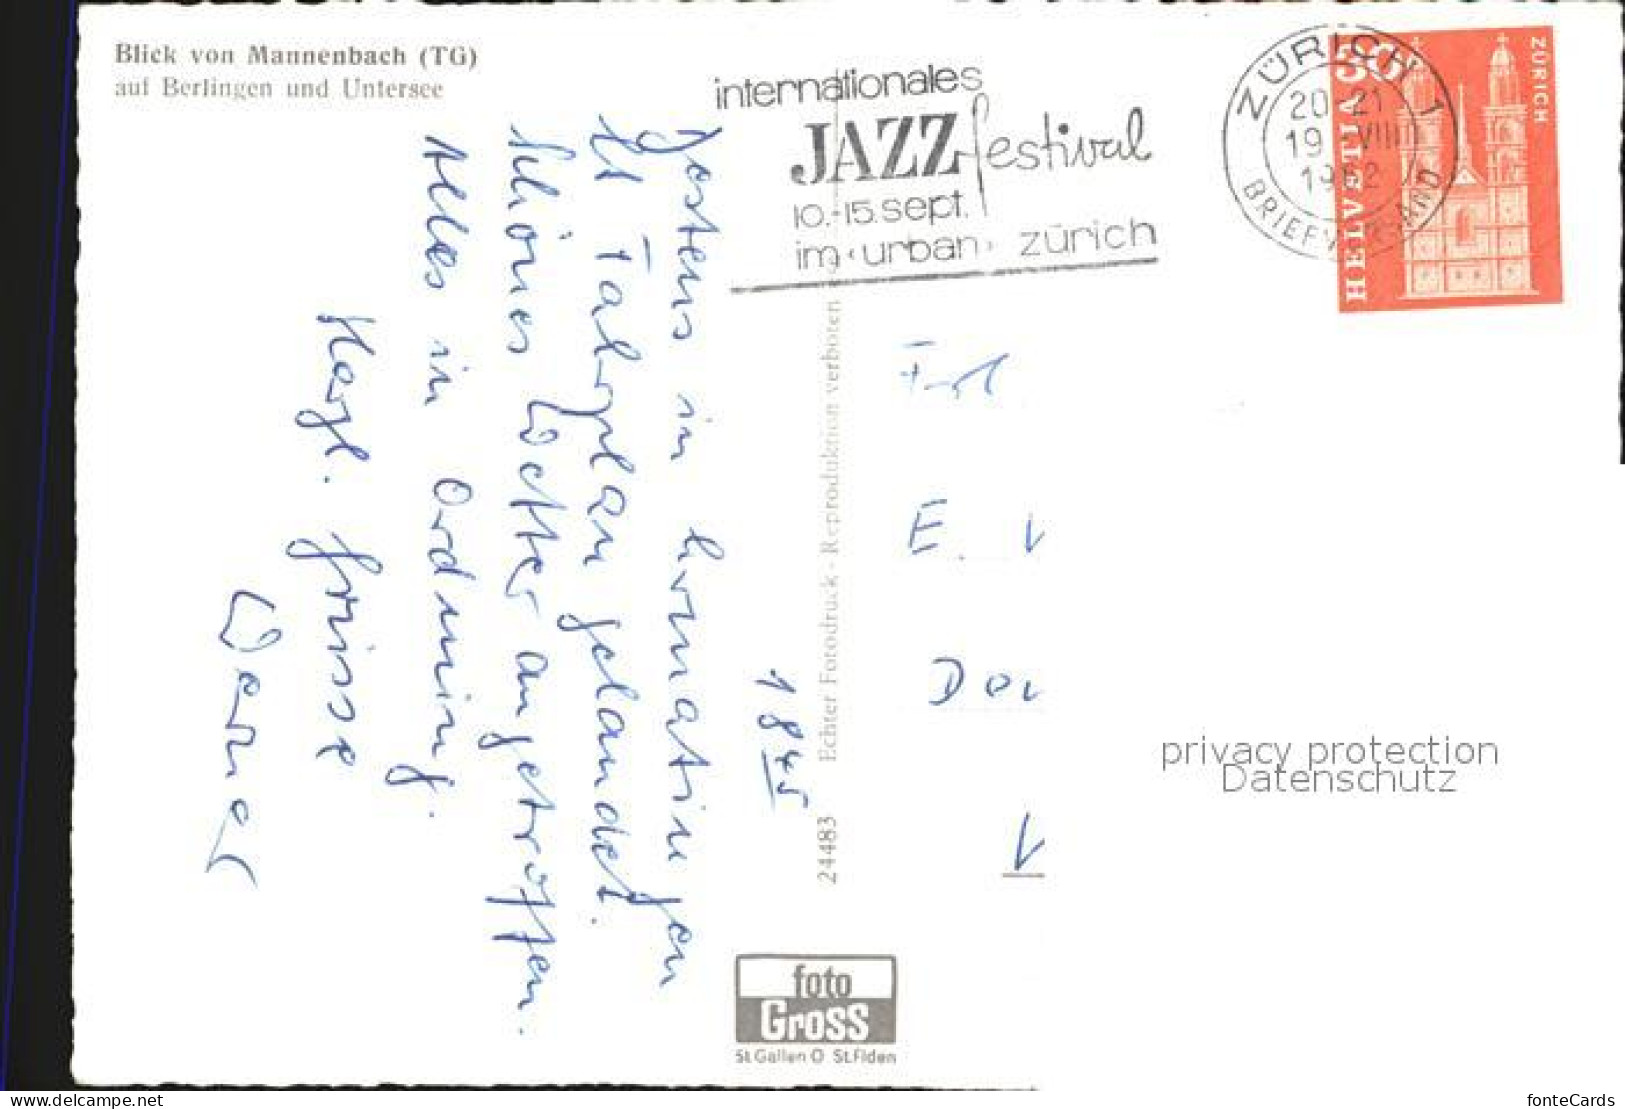 Blick von Mannenbach (TG)
auf Berlingen und Untersee
internationales
JAZZ festival
10.-15. sept.
im ‹urban› zürich
ZÜRICH 1
20-21
19 VIII
1962
BRIEFVERSAND
50
HELVETIA
ZÜRICH
18 45
Bestens in
ist Fahrplan gelandet.
Schönes Wetter angetroffen.
Alles in Ordnung.
Herzl. Grüsse
Werner
24483 Echter Fotodruck - Reproduktion verboten
Frl
E. V
Do
V
privacy protection
Datenschutz
foto
Gross
St.Gallen O St.Fiden
www.delcampe.net
fonteCards